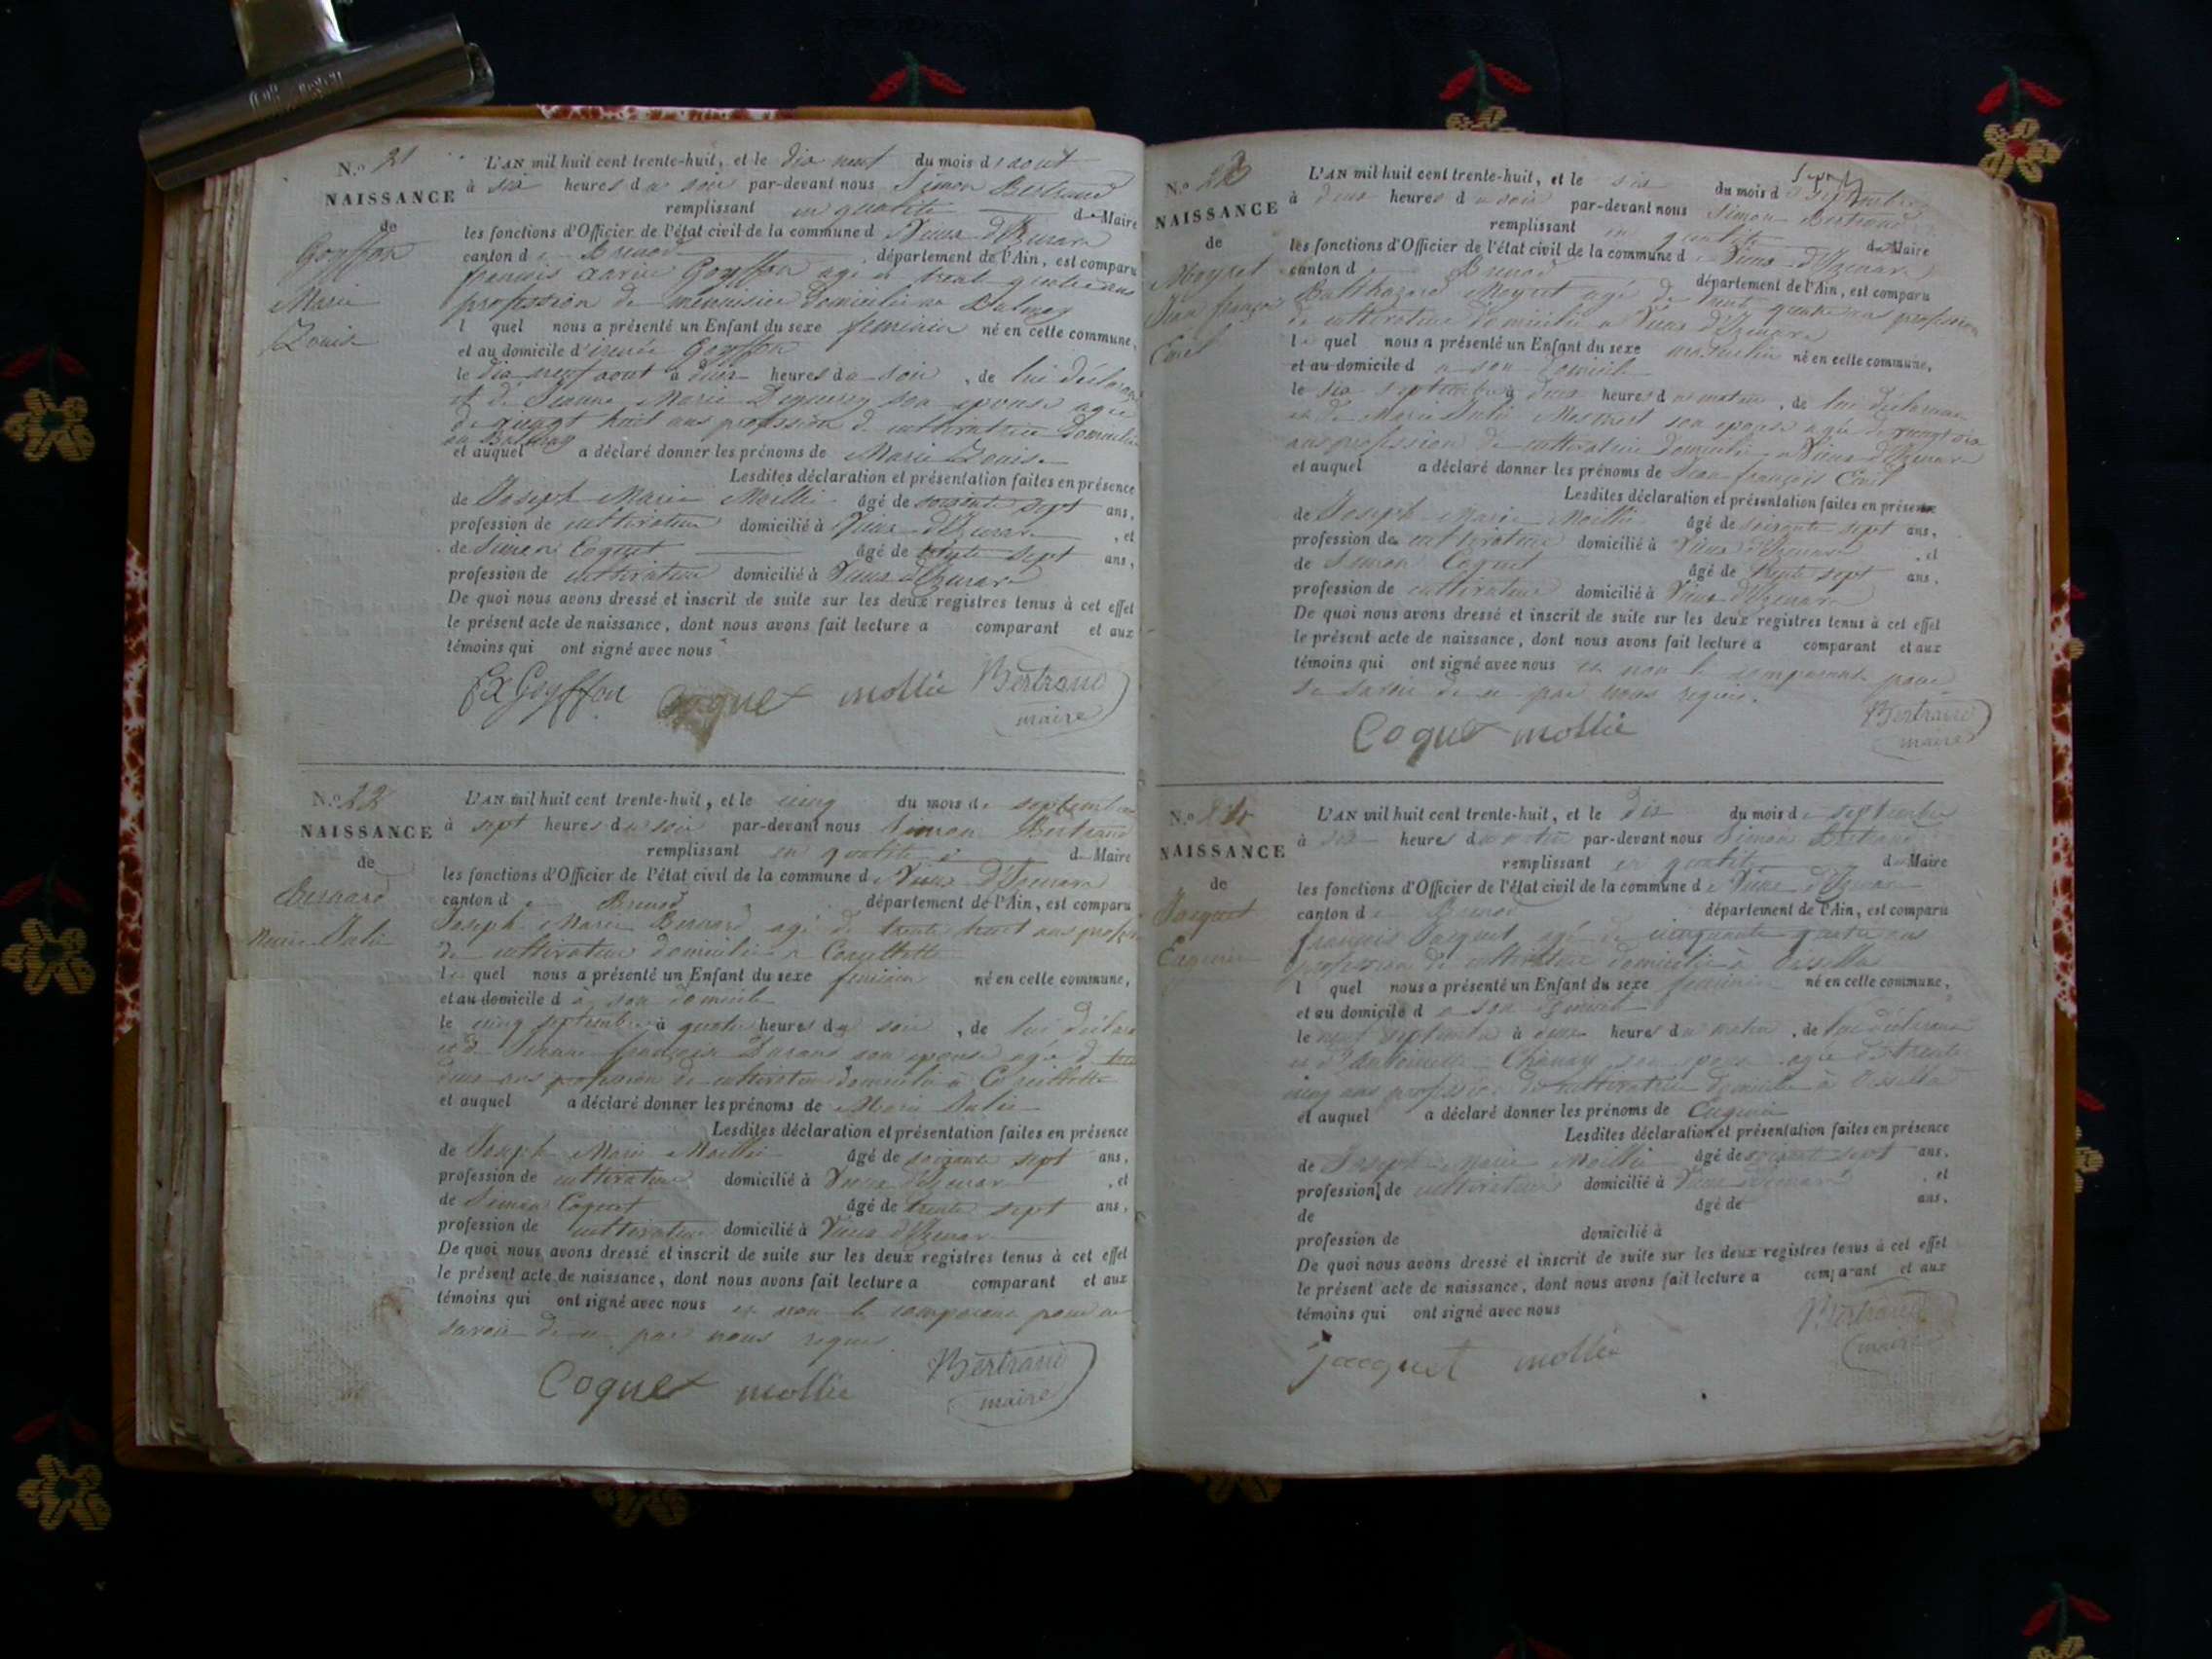 N.o 21
NAISSANCE
de
Goyffon
Marie
Louise
L'AN mil huit cent trente-huit, et le dix neuf du mois d'aout
à six heures du soir par-devant nous Simon Bertrand
remplissant en qualité de Maire
les fonctions d'Officier de l'état civil de la commune de Vieux d'Izenave
canton de Brenod département de l'Ain, est comparu
françois Xavier Goyffon agé de trente quatre ans
profession de menuisier domicilié au Balmay
l quel nous a présenté un Enfant du sexe feminin né en cette commune,
et au domicile d'irenée Goyffon
le dix neuf aout à deux heures du soir, de lui déclarant
et de Jeanne Marie son epouse agée
de vingt huit ans profession de cultivatrice domiciliée
au Balmay
et auquel a déclaré donner les prénoms de Marie Louise
Lesdites déclaration et présentation faites en présence
de Joseph Marie Mollie âgé de soixante sept ans,
profession de cultivateur domicilié à Vieux d'Izenave, et
de Simon Coquet âgé de trente sept ans,
profession de cultivateur domicilié à Vieux d'Izenave
De quoi nous avons dressé et inscrit de suite sur les deux registres tenus à cet effet
le présent acte de naissance, dont nous avons fait lecture a comparant et aux
témoins qui ont signé avec nous
FX Goyffon Coquet mollie Bertrand
maire
N.o 22
NAISSANCE
de
Bernard
Marie Julie
L'AN mil huit cent trente-huit, et le cinq du mois de septembre
à sept heures du soir par-devant nous Simon Bertrand
remplissant en qualité de Maire
les fonctions d'Officier de l'état civil de la commune de Vieux d'Izenave
canton de Brenod département de l'Ain, est comparu
Joseph Marie Bernard agé de trente huit ans profession
de cultivateur domicilié a
le quel nous a présenté un Enfant du sexe feminin né en cette commune,
et au domicile d à son domicile
le cinq septembre à quatre heures du soir, de lui déclarant
et de Jeanne françoise son epouse agée de
deux ans profession de cultivatrice domiciliée à
et auquel a déclaré donner les prénoms de Marie Julie
Lesdites déclaration et présentation faites en présence
de Joseph Marie Mollie âgé de soixante sept ans,
profession de cultivateur domicilié à Vieux d'Izenave, et
de Simon Coquet âgé de trente sept ans,
profession de cultivateur domicilié à Vieux d'Izenave
De quoi nous avons dressé et inscrit de suite sur les deux registres tenus à cet effet
le présent acte de naissance, dont nous avons fait lecture a comparant et aux
témoins qui ont signé avec nous et non le comparant pour ne
savoir de ce par nous requis.
Coquet mollie Bertrand
maire
N.o 23
NAISSANCE
de
Moyret
Jean françois
Emel
L'AN mil huit cent trente-huit, et le six du mois de Septembre
à deux heures du soir par-devant nous Simon Bertrand
remplissant en qualité de Maire
les fonctions d'Officier de l'état civil de la commune de Vieux d'Izenave
canton d Brenod département de l'Ain, est comparu
Balthazard Moyret agé de trente quatre ans profession
de cultivateur domicilié a Vieux d'Izenave
le quel nous a présenté un Enfant du sexe masculin né en cette commune,
et au domicile d a son domicile
le six septembre à deux heures du matin, de lui déclarant
et de Marie Julie son epouse agée de vingt six
ans profession de cultivatrice domiciliée a Vieux d'Izenave
et auquel a déclaré donner les prénoms de Jean françois Emel
Lesdites déclaration et présentation faites en présence
de Joseph Marie Mollie âgé de soixante sept ans,
profession de cultivateur domicilié à Vieux d'Izenave, et
de Simon Coquet âgé de trente sept ans,
profession de cultivateur domicilié à Vieux d'Izenave
De quoi nous avons dressé et inscrit de suite sur les deux registres tenus à cet effet
le présent acte de naissance, dont nous avons fait lecture a comparant et aux
témoins qui ont signé avec nous et non le comparant pour
ne savoir de ce par nous requis.
Coquet mollie Bertrand
maire
N.o 24
NAISSANCE
de
Jacquet
Eugenie
L'AN mil huit cent trente-huit, et le dix du mois de septembre
à six heures du matin par-devant nous Simon Bertrand
remplissant en qualité de Maire
les fonctions d'Officier de l'état civil de la commune de Vieux d'Izenave
canton de Brenod département de l'Ain, est comparu
françois Jacquet agé de cinquante quatre ans
profession de cultivateur domicilié à Oisselaz
l quel nous a présenté un Enfant du sexe feminin né en cette commune,
et au domicile d a son domicile
le neuf septembre à deux heures du matin, de lui déclarant
et d'Antoinette son epouse agée de trente
cinq ans profession de cultivatrice domiciliée à Oisselaz
et auquel a déclaré donner les prénoms de Eugenie
Lesdites déclaration et présentation faites en présence
de Joseph Marie Mollie âgé de soixante sept ans,
profession de cultivateur domicilié à Vieux d'Izenave, et
de âgé de ans,
profession de domicilié à
De quoi nous avons dressé et inscrit de suite sur les deux registres tenus à cet effet
le présent acte de naissance, dont nous avons fait lecture a comparant et aux
témoins qui ont signé avec nous
jacquet mollie Bertrand
maire